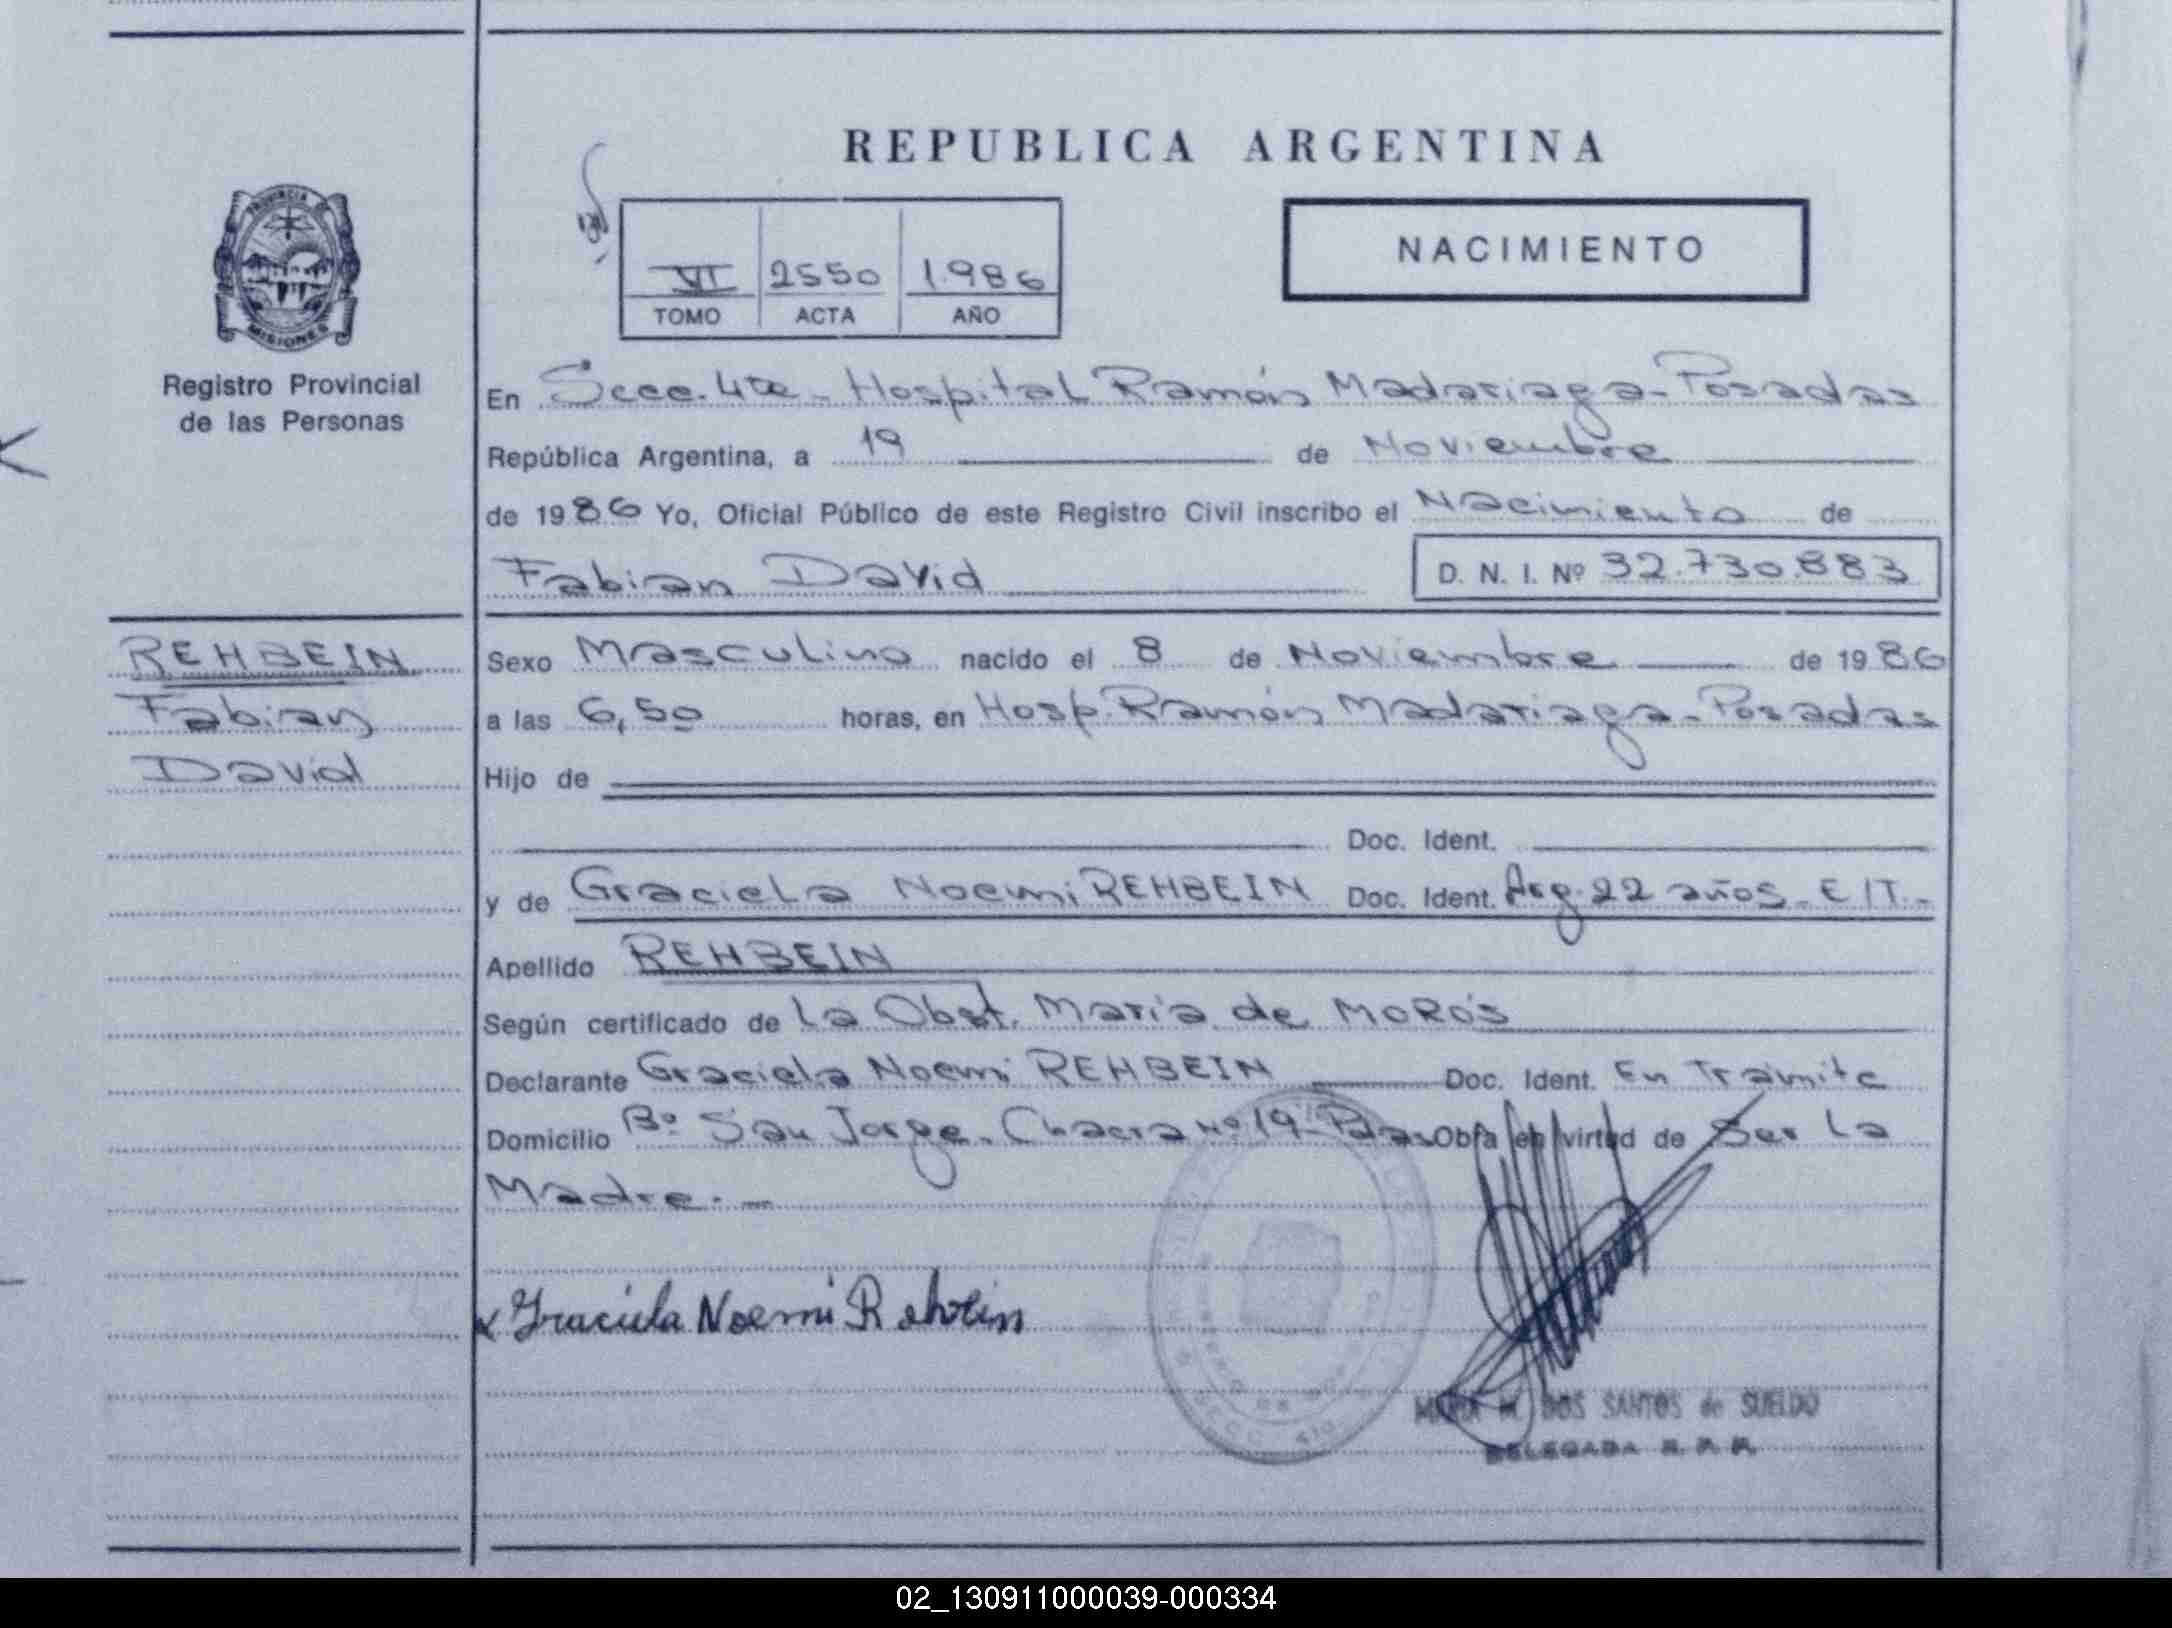 REPUBLICA ARGENTINA
VI 2550 1.986
TOMO ACTA AÑO
NACIMIENTO
PROVINCIA DE
MISIONES
Registro Provincial
de las Personas
En Secc. 4ta - Hospital Ramón Madariaga - Posadas
República Argentina, a 19 de Noviembre
de 1986 Yo, Oficial Público de este Registro Civil inscribo el Nacimiento de
Fabian David D. N. I. Nº 32.730.883
REHBEIN
Fabian
David
Sexo Masculino nacido el 8 de Noviembre de 1986
a las 6,50 horas, en Hosp. Ramón Madariaga - Posadas
Hijo de
Doc. Ident.
y de Graciela Noemi REHBEIN Doc. Ident. Arg. 22 años - E/T.-
Apellido REHBEIN
Según certificado de La Obst. María de MOROS
Declarante Graciela Noemi REHBEIN Doc. Ident. En Tramite
Domicilio Bº San Jorge - Chacra Nº 19 - Pdas Obra en virtud de Ser La
Madre.-
Graciela Noemi Rehbein
MARIA M. DOS SANTOS de SUELDO
DELEGADA R. P. P.
02_130911000039-000334